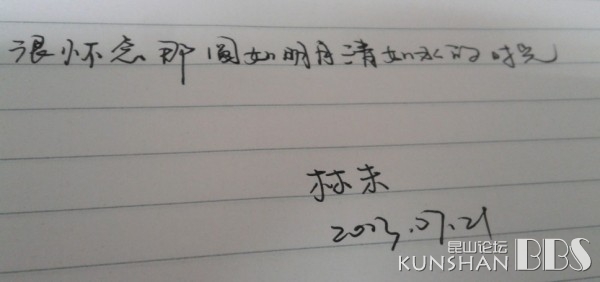 很怀念那圆如明月清如水的时光
林未
2013.07.21
昆山论坛
KUNSHAN BBS